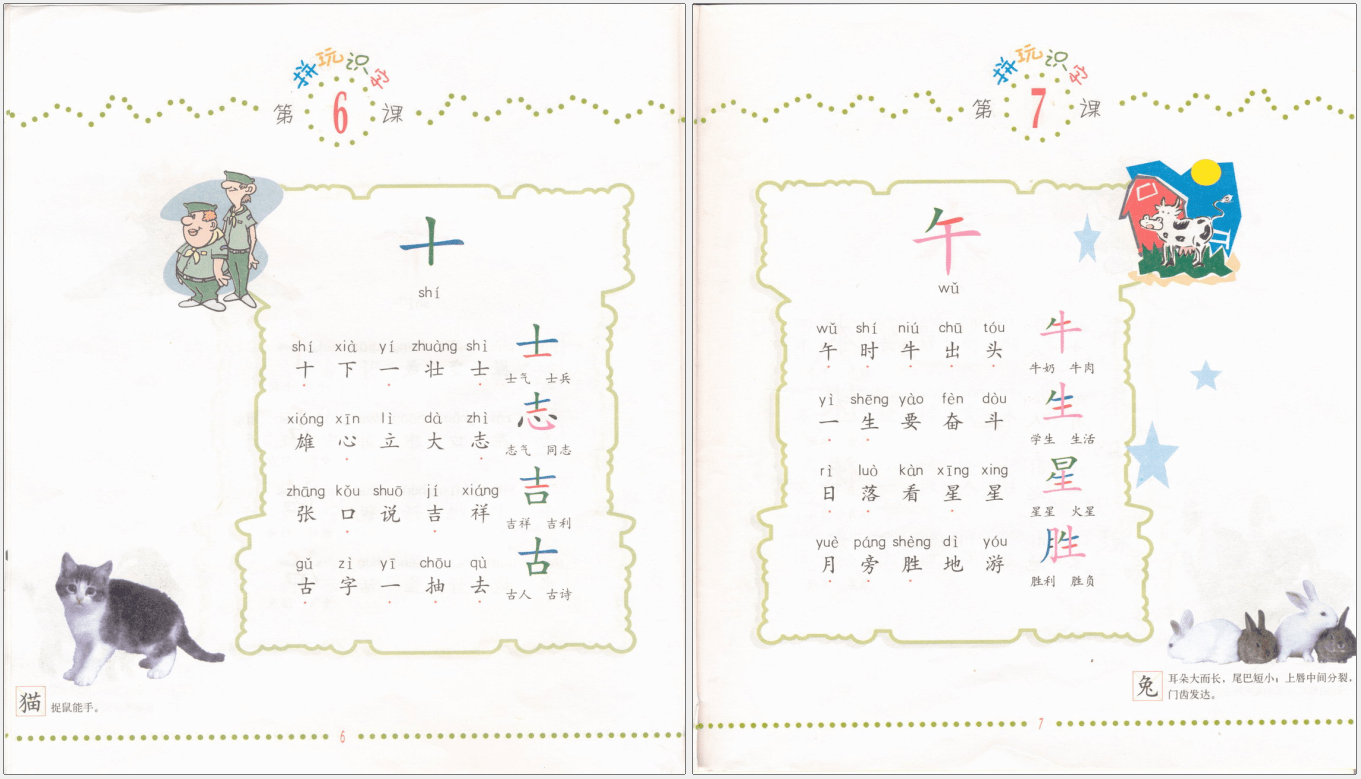 拼玩识字
第6课
十
shí
shí xià yí zhuàng shì
十下一壮士
士
士气 士兵
xióng xīn lì dà zhì
雄心立大志
志
志气 同志
zhāng kǒu shuō jí xiáng
张口说吉祥
吉
吉祥 吉利
gǔ zì yī chōu qù
古字一抽去
古
古人 古诗
猫
捉鼠能手。
6
拼玩识字
第7课
午
wǔ
wǔ shí niú chū tóu
午时牛出头
牛
牛奶 牛肉
yì shēng yào fèn dòu
一生要奋斗
生
学生 生活
rì luò kàn xīng xing
日落看星星
星
星星 火星
yuè páng shèng dì yóu
月旁胜地游
胜
胜利 胜负
兔
耳朵大而长，尾巴短小；上唇中间分裂，
门齿发达。
7